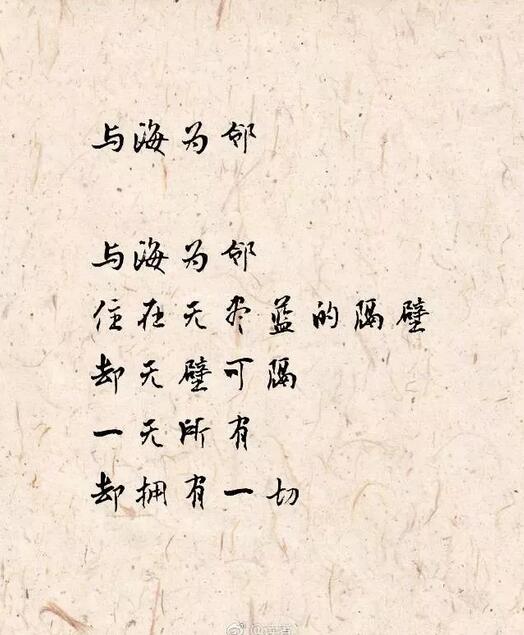 与海为邻
与海为邻
住在无尽蓝的隔壁
却无壁可隔
一无所有
却拥有一切